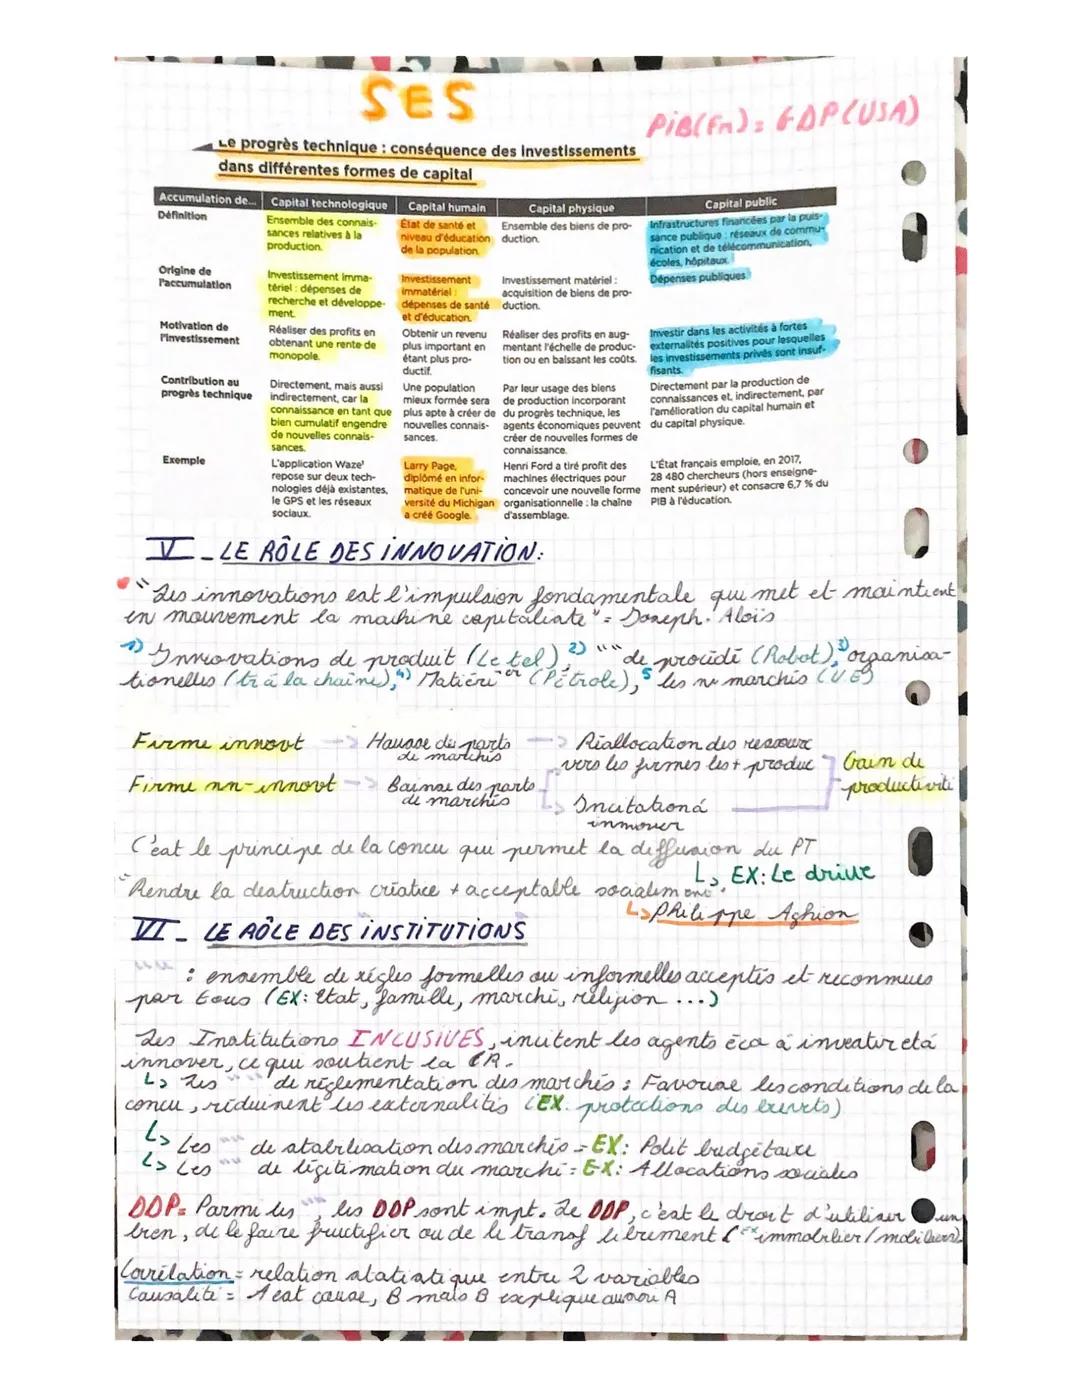 SES
PiB(Fn) = GDP(USA)
Le progrès technique : conséquence des investissements
dans différentes formes de capital
Accumulation de... Capital technologique Capital humain Capital physique Capital public
Définition
Ensemble des connais-
sances relatives à la
production.
État de santé et
niveau d'éducation
de la population.
Ensemble des biens de pro-
duction.
Infrastructures financées par la puis-
sance publique : réseaux de commu-
nication et de télécommunication,
écoles, hôpitaux.
Origine de
l'accumulation
Investissement imma-
tériel : dépenses de
recherche et développe-
ment.
Investissement
immatériel :
dépenses de santé
et d'éducation.
Investissement matériel :
acquisition de biens de pro-
duction.
Dépenses publiques.
Motivation de
l'investissement
Réaliser des profits en
obtenant une rente de
monopole.
Obtenir un revenu
plus important en
étant plus pro-
ductif.
Réaliser des profits en aug-
mentant l'échelle de produc-
tion ou en baissant les coûts.
Investir dans les activités à fortes
externalités positives pour lesquelles
les investissements privés sont insuf-
fisants.
Contribution au
progrès technique
Directement, mais aussi
indirectement, car la
connaissance en tant que
bien cumulatif engendre
de nouvelles connais-
sances.
Une population
mieux formée sera
plus apte à créer de
nouvelles connais-
sances.
Par leur usage des biens
de production incorporant
du progrès technique, les
agents économiques peuvent
créer de nouvelles formes de
connaissance.
Directement par la production de
connaissances et, indirectement, par
l'amélioration du capital humain et
du capital physique.
Exemple
L'application Waze¹
repose sur deux tech-
nologies déjà existantes,
le GPS et les réseaux
sociaux.
Larry Page,
diplômé en infor-
matique de l'uni-
versité du Michigan
a créé Google.
Henri Ford a tiré profit des
machines électriques pour
concevoir une nouvelle forme
organisationnelle : la chaîne
d'assemblage.
L'État français emploie, en 2017,
28 480 chercheurs (hors enseigne-
ment supérieur) et consacre 6,7 % du
PIB à l'éducation.
V - LE RÔLE DES INNOVATION:
"Les innovations est l'impulsion fondamentale qui met et maintient
en mouvement la machine capitaliste" = Joseph. Aloïs
1) Innovations de produit (Le tel), 2) "" de procédé (Robot), 3) organisa-
tionelles (tr à la chaine), 4) Matièr 1er (Pétrole), 5 les nv marchés (U.E)
Firme innovt -> Hausse des parts de marchés -> Réallocation des ressourc
vers les firmes les + produc
Gain de
productivité
Firme nn-innovt -> Baisse des parts de marchés
Incitation à
innover
C'est le principe de la concu qui permet la diffusion du PT
↳ EX: Le drive
"Rendre la destruction créatice + acceptable socialement".
↳ Philippe Aghion
VI - LE RÔLE DES INSTITUTIONS
"" : ensemble de règles formelles ou informelles acceptés et reconnues
par tous (EX: Etat, famille, marché, religion ...)
Les Institutions INCUSIVES, incitent les agents éco à investir et à
innover, ce qui soutient la CR.
↳ Les "" de réglementation des marchés : Favorise les conditions de la
concu, réduisent les externalités (EX. protections des brevets)
↳ Les "" de stabilisation des marchés = EX: Polit budgétaire
↳ Les "" de légitimation du marché = EX: Allocations sociales
DDP = Parmi les "", les DDP sont impt. Le DDP, c'est le droit d'utiliser un
bien, de le faire fructifier ou de le transf librement (Ex immobilier/mobiliers).
Corrélation = relation statistique entre 2 variables
Causalité = A est cause, B mais B explique aussi A